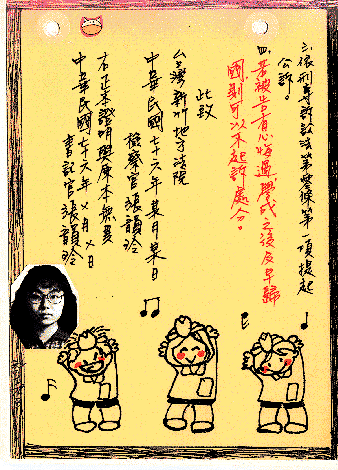 三、依刑事訴訟法第零條第一項提起
公訴。
四、若被告有心悔過，學成之後及早歸
國，則可以不起訴處分。
此致
台灣新竹地方法院
中華民國七十六年某月某日
檢察官張韻玲
右正本證明與原本無異
中華民國七十六年乂月乂日
書記官張韻玲